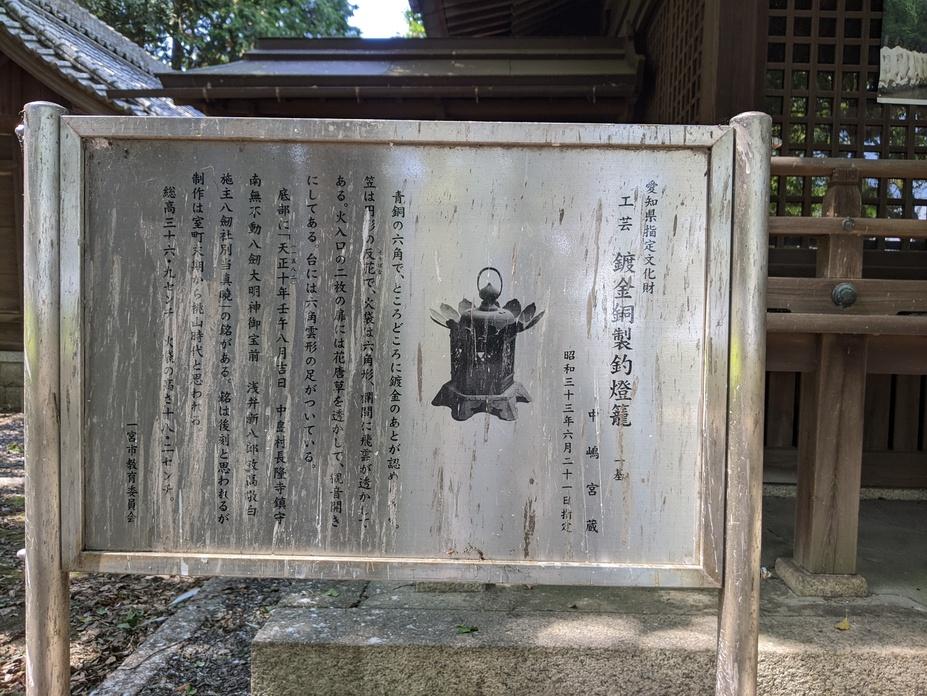 愛知県指定文化財
工芸　鍍金銅製釣燈籠　一基
中嶋宮蔵
昭和三十三年六月二十一日指定
青銅の六角で、ところどころに鍍金のあとが認め
笠は円形の反花で、火袋は六角形、欄間に飛雲が透か
ある。火入口の二枚の扉には花唐草を透かして、観音開き
にしてある。台には六角雲形の足がついている。
底部に「天正十年壬午八月吉日　中嶋村長隆寺鎮守
南無不動八劔大明神御宝前　浅井新八郎政高敬白
施主八劔社別当真暁」の銘がある。銘は後刻と思われるが
制作は室町末期から桃山時代と思われ
総高三十六・九センチ　火袋の高さ十八・二センチ。
一宮市教育委員会